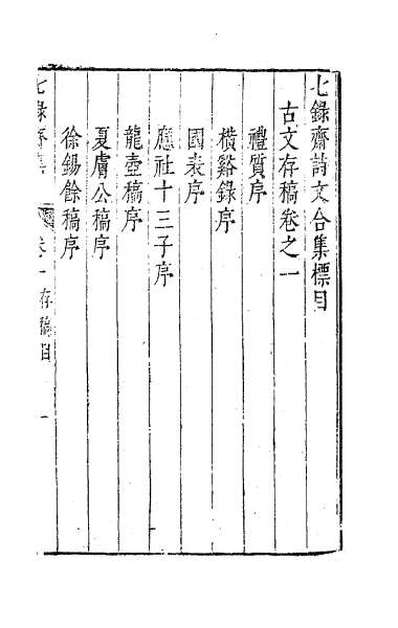 七錄齋詩文合集標目
古文存稿卷之一
禮質序
橫谿錄序
國表序
應社十三子序
龍壺稿序
夏膚公稿序
徐錫餘稿序
七錄齋集 卷一存稿目 一